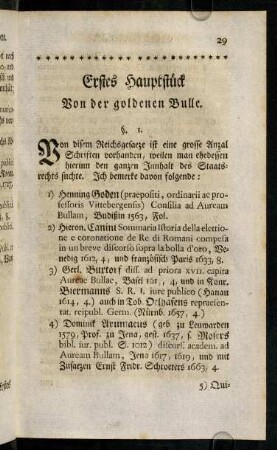 29
Erstes Hauptstück
Von der goldenen Bulle.
§. 1.
Von disem Reichsgesaze ist eine grosse Anzal
Schriften vorhanden, weilen man ehedessen
hierinn den ganzen Innhalt des Staats-
rechts suchte. Ich bemerke davon folgende:
1) Henning Goden (praepositi, ordinarii ac pro-
fessoris Vittebergensis) Consilia ad Auream
Bullam, Budißin 1563, Fol.
2) Hieron. Canini Sommaria Istoria della elettio-
ne e coronatione de Re di Romani compesa
in un breve discorso sopra la bolla d'oro, Ve-
nedig 1612, 4; und französisch Paris 1633, 8.
3) Gerl. Buxtorf diss. ad priora XVII. capita
Aureae Bullae, Basel 1611, 4, und in Conr.
Biermanns S. R. I. iure publico (Hanau
1614, 4.) auch in Tob. Oelhafens repraesen-
tat. reipubl. Germ. (Nürnb. 1657, 4.)
4) Dominik Arumaeus (geb zu Leuwarden
1579, Prof. zu Jena, gest. 1637, s. Mosers
bibl. iur. publ. S. 1012) discurs. academ. ad
Auream Bullam, Jena 1617, 1619, und mit
Zusaezen Ernst Fridr. Schroeters 1663, 4.
5) Qui-